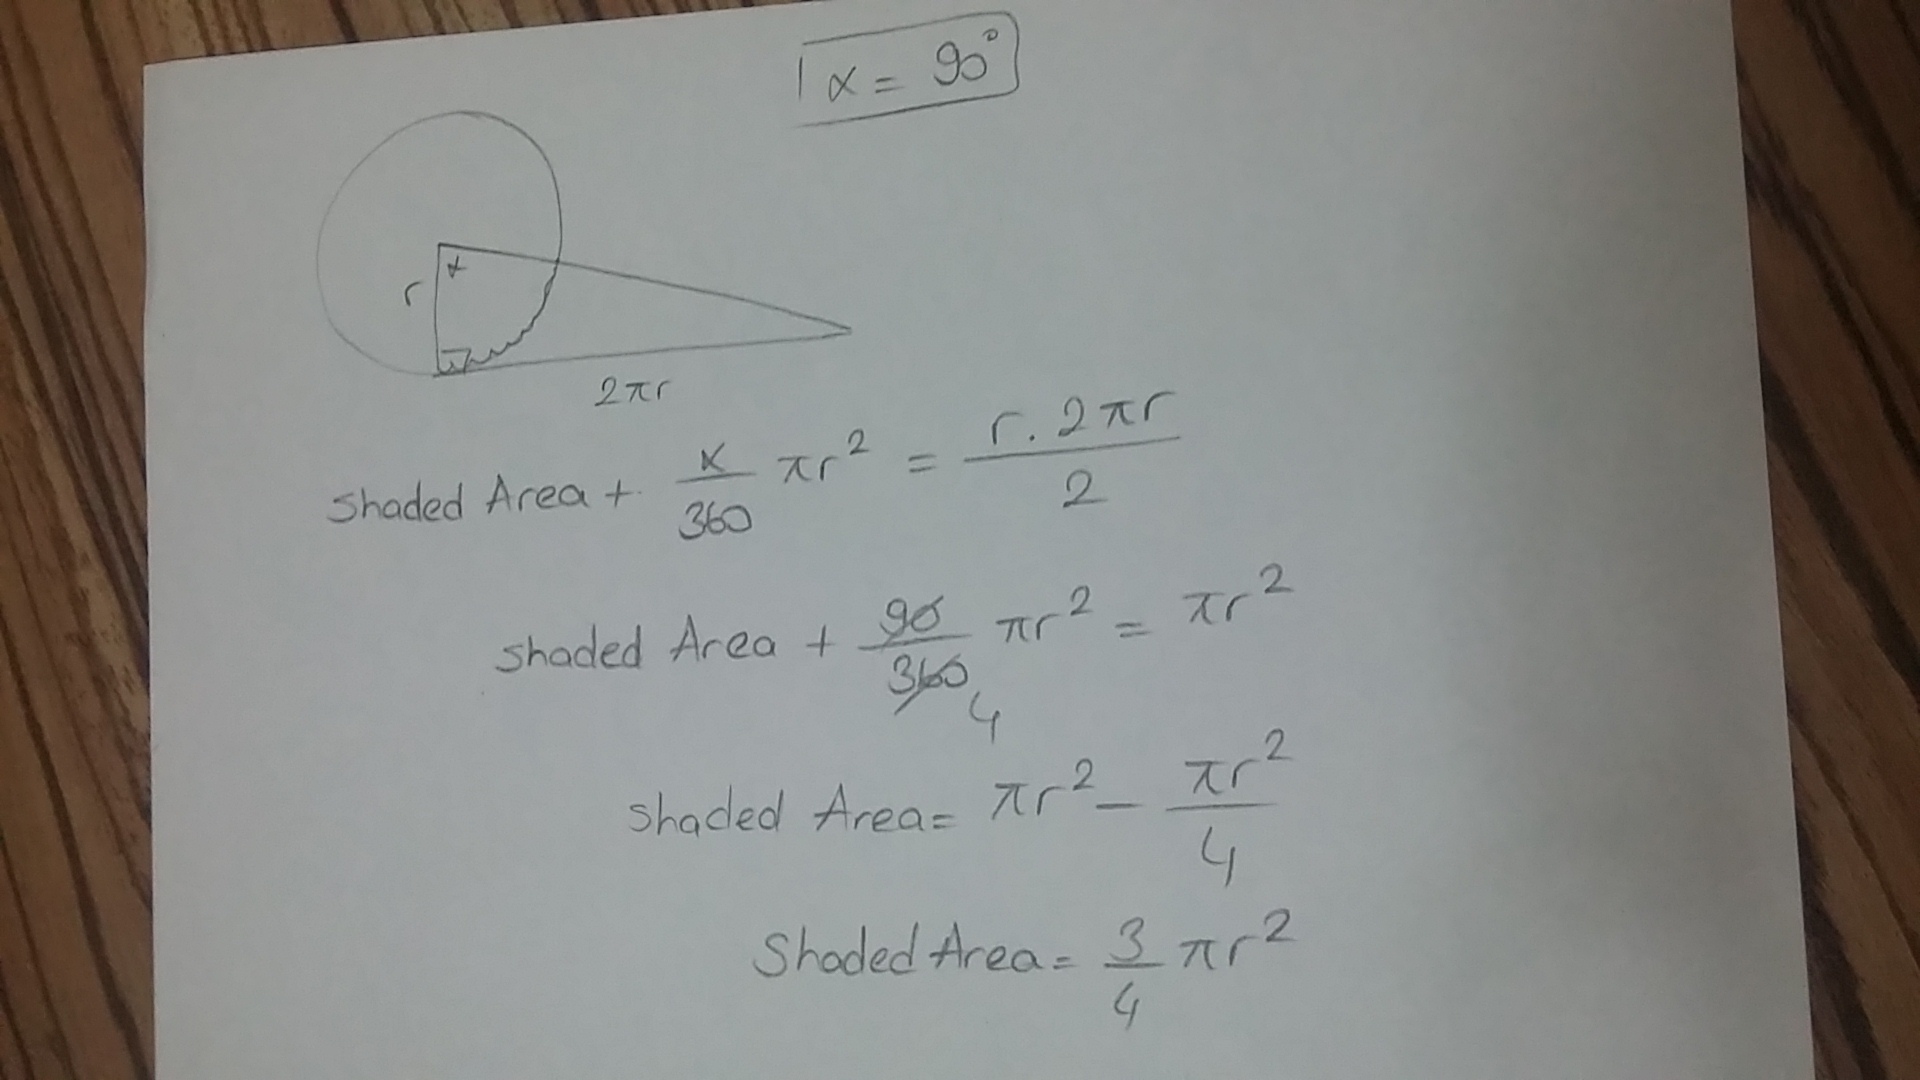 α = 90°
α
r
2πr
Shaded Area + α/360 πr² = r. 2πr/2
shaded Area + 90/360 4 πr² = πr²
shaded Area = πr² − πr²/4
Shaded Area = 3/4 πr²